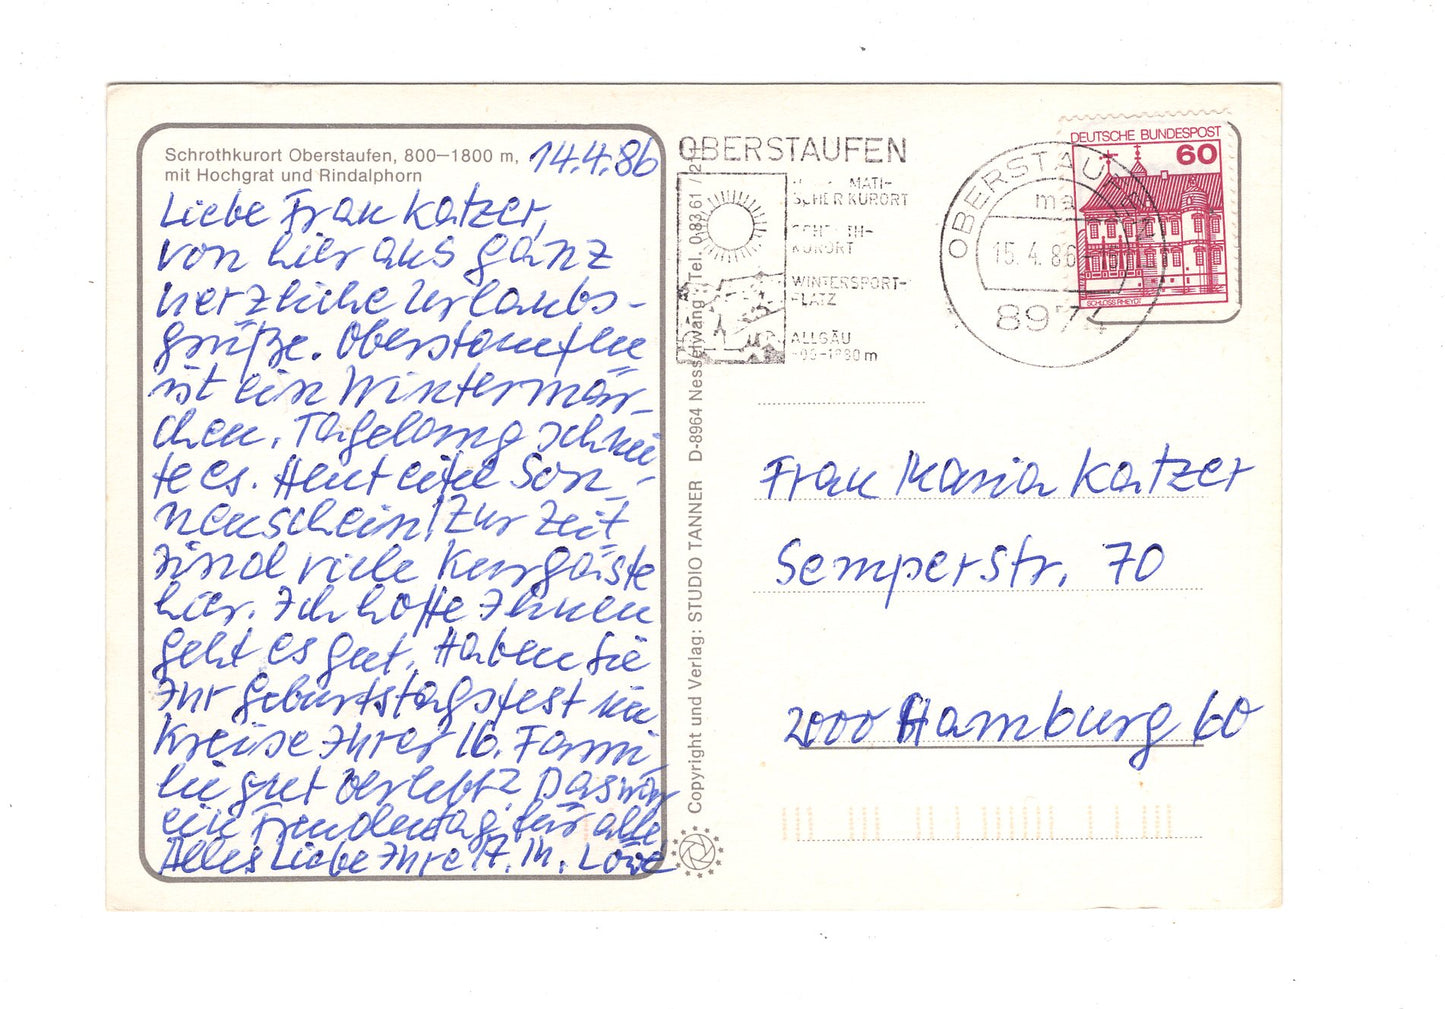 Schrothkurort Oberstaufen, 800–1800 m,
mit Hochgrat und Rindalphorn
14.4.86
Liebe Frau Katzer,
von hier aus ganz
herzliche Urlaubs-
grüße. Oberstaufen
ist ein Wintermär-
chen. Tagelang schnei-
te es. Heut
Son-
nenschein! Zur Zeit
sind viele Kurgäste
hier. Ich hoffe Ihnen
geht es gut. Haben Sie
Ihr Geburtstagsfest im
Kreise Ihrer lb. Fami-
lie gut verlebt? Das war
ein Freudentag für alle
Alles Liebe Ihre
Löwe
Copyright und Verlag: STUDIO TANNER D-8964 Nesselwang · Tel. 08361 /
OBERSTAUFEN
MATI-
SCHER KURORT
KURORT
WINTERSPORT-
PLATZ
ALLGÄU
OBERSTAUFEN
15.4.86
897
DEUTSCHE BUNDESPOST
60
SCHLOSS RHEYDT
Frau Maria Katzer
Semperstr. 70
2000 Hamburg 60